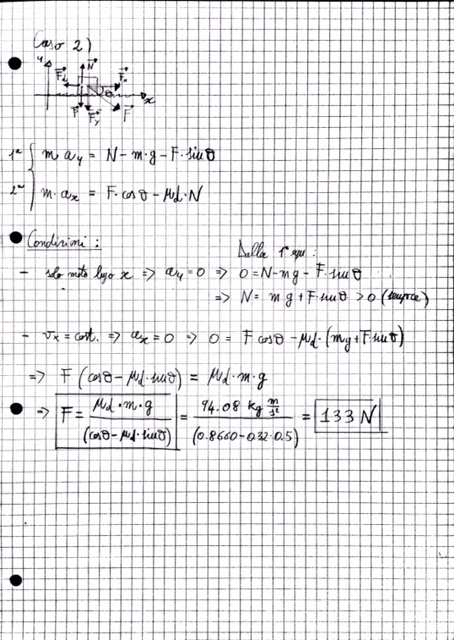 Caso 2)
y N⃗ F⃗d F⃗x θ x
P⃗ F⃗y F⃗
1ª m ay = N - m·g - F·sinθ
2ª m·ax = F·cosθ - μd·N
Condizioni : Dalla 1ª equ.:
- solo moto lungo x => ay = 0 => 0 = N - mg - F·sinθ
=> N = mg + F·sinθ > 0 (sempre)
- vx = cost. => ax = 0 => 0 = F cosθ - μd·(mg + F sinθ)
=> F (cosθ - μd·sinθ) = μd·m·g
=> F = μd·m·g / (cosθ - μd·sinθ) = 94.08 kg m/s² / (0.8660 - 0.32·0.5) = 133 N